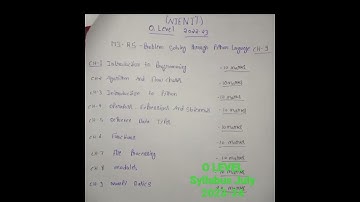 (NIENIT)
O Level 2022-23
M3-R5 - Problem Solving through Python Language CH-9
CH-1 Introduction to Programming - 10 marks
CH-2 Algorithm and Flow Charts - 10 marks
CH-3 Introduction to Python - 10 marks
CH-4 Operators Expressions And Statements - 10 marks
CH-5 Sequence Data Types - 10 marks
CH-6 Functions - 10 marks
CH-7 File Processing - 10 marks
CH-8 modules - 10 marks
CH-9
O LEVEL
Syllabus July